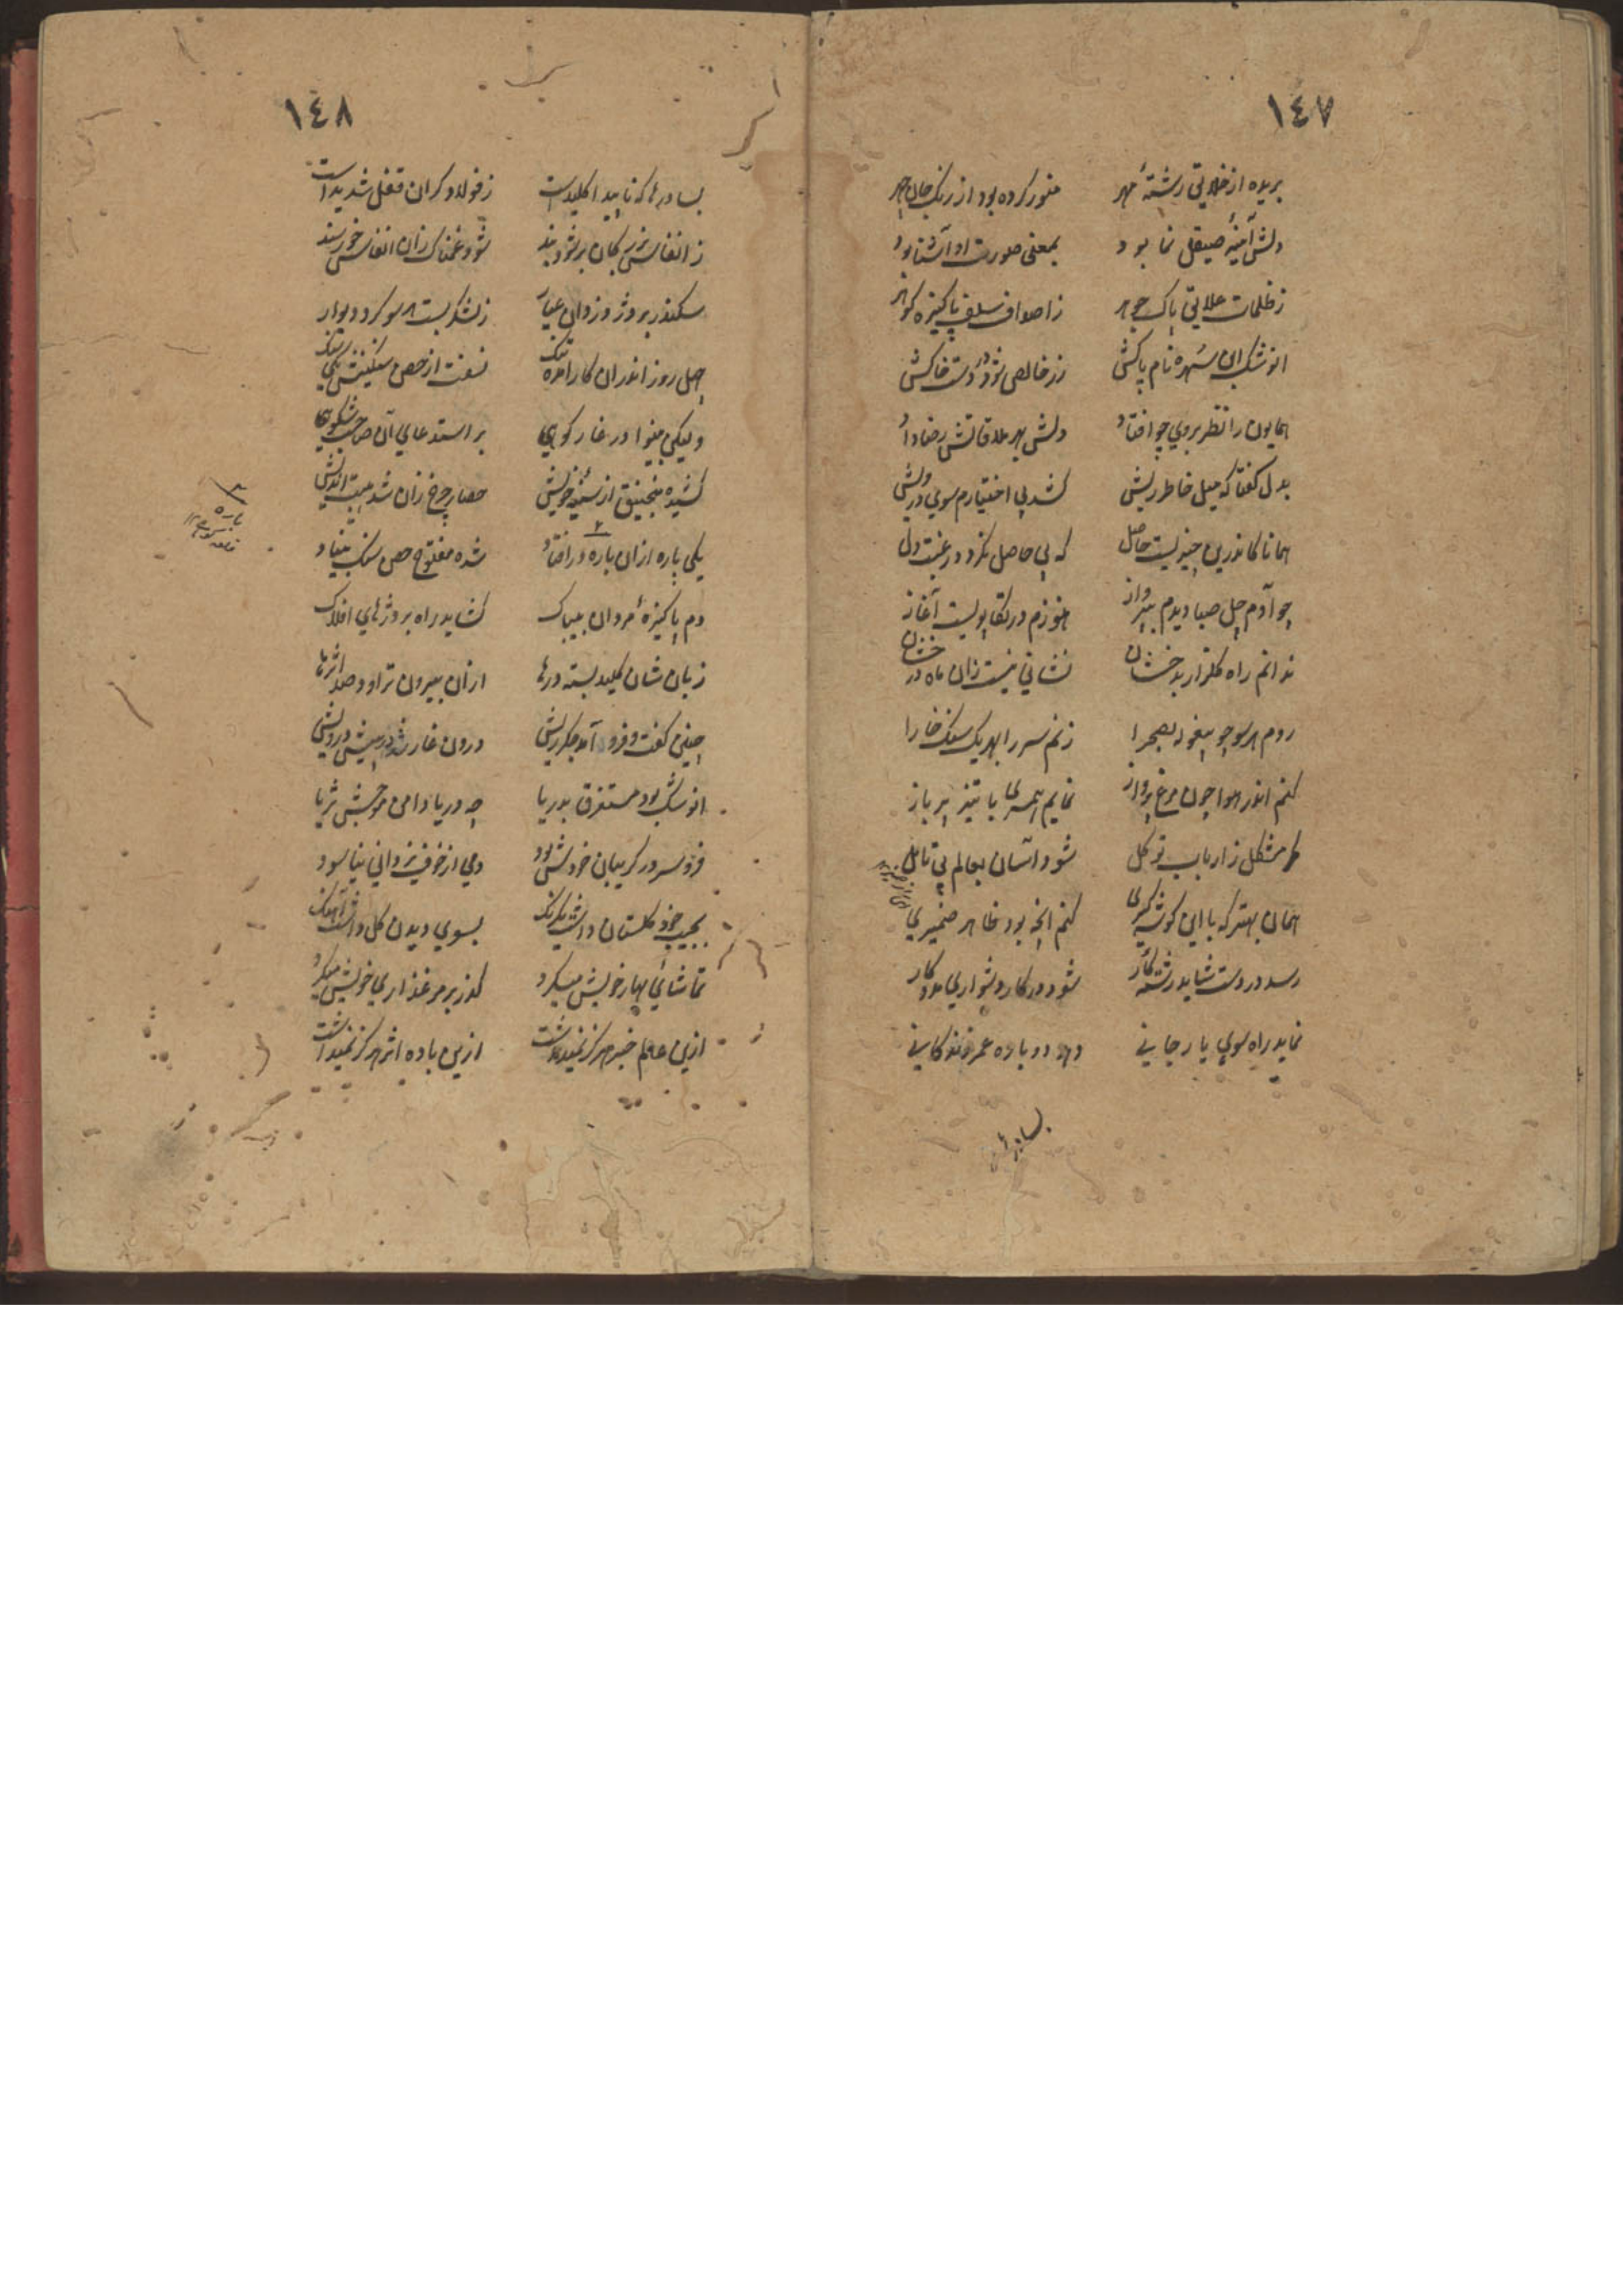 ١٤٧
بریده از خلایق رشتهٔ مهر منور کرده بود از رنک جان چهر
دلش آئینهٔ صیقل نما بود بمعنی صورت او آشنا بود
ز ظلمات علایق پاک جوهر ز اصداف سلف پاکیزه کوهر
انوشک ان شهره نام پاکش زر خالص شود در دست خاکش
همایون را نظر بروی چو افتاد دلش بهر ملاقاتش رضا داد
بدل کفتا که میل خاطر ریش کشد بی اختیارم سوی درویش
همانا کاندرین چیزیست حاصل که بی حاصل نکردد رغبت دل
چو آدم چل صبا دیدم بپرواز هنوزم در تکاپویست آغاز
ندانم راه کلزار بدخشان نشانی نیست زان ماه درخشان
روم هر سو چو بیغوله بصحرا زنم سر را بهر یک سنک خارا
کنم اندر هوا چون مرغ پرواز نمایم همسری با تیز پر باز
مشکل ز ارباب توکل شود آسان بعالم بی تامل
همان بهتر که با این کوشه کیری کنم انچه بود ظاهر ضمیری
رسد در دست شاید رشته کار شود در کار دشواری مددکار
نماید راه سوی یار جانی دهد دوباره عمر زندکانی
بسا درها
١٤٨
بسا درها که ناپیدا کلیدست ز فولاد کران قفل شدیدست
ز انفاس بزرکان بر شود بند شود غمناک زان انفاس خورسند
سکندر بر دژ دزدان عیار ز لشکر بست هر سو کرد دیوار
چل روز اندران کار آمده تنک نسفت از حصن سنکینش یکی سنک
ولیکی بینوا در غار کوهی بر استدعای آن صاحب شکوهی
کشیده منجنیق از سینه خویش حصار چرخ زان شد هیبت اندیش
یکی پاره ازان باره در افتاد شده مفتوح حصن سنک بنیاد
دم پاکیزهٔ مردان بیباک کشاید راه بر دژهای افلاک
زبان شان کلید بسته درها ازان بیرون تراود صد اثرها
چنین کفت و فرود آمد جکر ریش درون غار شد در پیش درویش
انوشک بود مستغرق بدریا چه دریا دامن موجش ثریا
فرو سر در کریبان خودش بود دمی از خوف یزدانی نیاسود
بجیب خود کلستان داشت یکرنک بسوی دیدن کل داشت آهنک
تماشائی بهار خویش میکرد کذر بر مرغزاری خویش میکرد
ازین عالم خبر هرکز نمیداشت ازین باده اثر هرکز نمیداشت